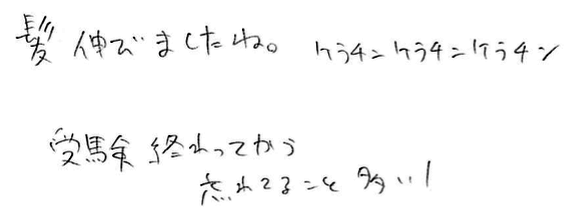 髪 伸びましたね。 ケラチンケラチンケラチン
受験 終わってから
忘れてること 多い!